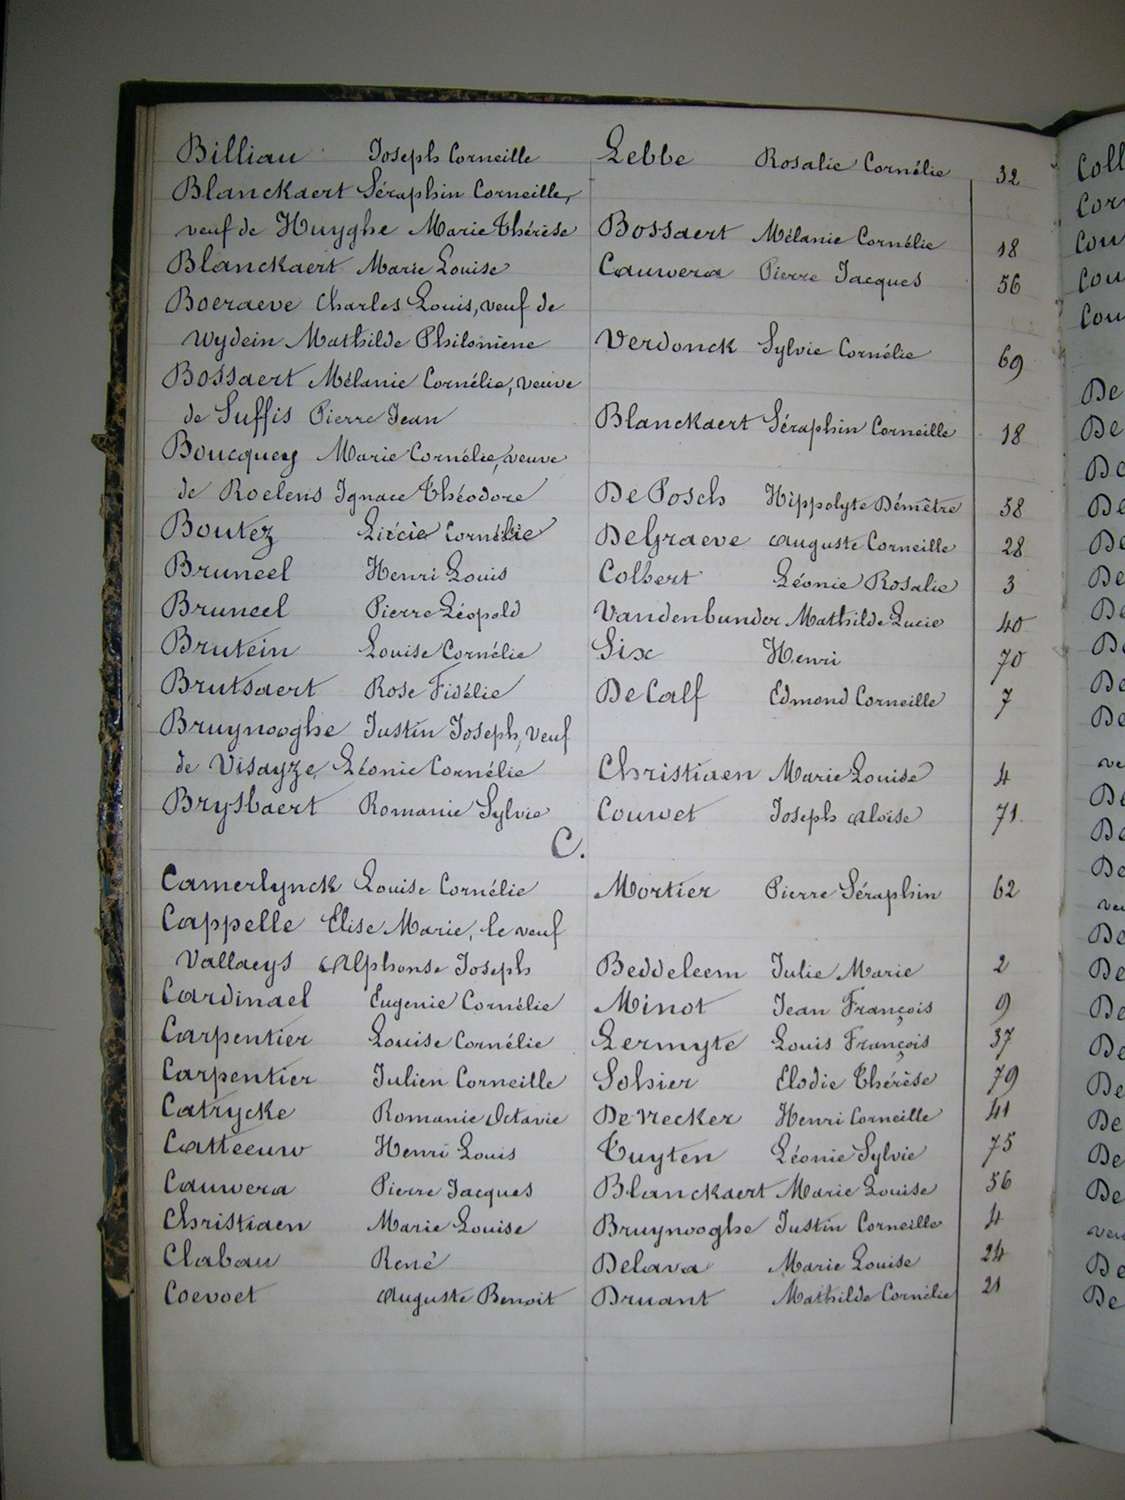 Billiau Joseph Corneille Lebbe Rosalie Cornélie 32
Blanckaert Séraphin Corneille,
veuf de Huyghe Marie Thérèse Bossaert Mélanie Cornélie 18
Blanckaert Marie Louise Cauwera Pierre Jacques 56
Boeraeve Charles Louis, veuf de
Wydein Mathilde Philomène Verdonck Sylvie Cornélie 69
Bossaert Mélanie Cornélie, veuve
de Suffis Pierre Jean Blanckaert Séraphin Corneille 18
Boucquey Marie Cornélie, veuve
de Roelens Ignace Théodore De Posch Hippolyte Démètre 58
Boutez Cornélie DeGraeve Auguste Corneille 28
Bruneel Henri Louis Colbert Léonie Rosalie 3
Bruneel Pierre Léopold Vandenbunder Mathilde Lucie 40
Brutein Louise Cornélie Six Henri 70
Brutsaert Rose Fidélie De Calf Edmond Corneille 7
Bruynooghe Justin Joseph, veuf
de Visayze, Léonie Cornélie Christiaen Marie Louise 4
Brysbaert Romanie Sylvie Couwet Joseph Aloïse 71
C.
Camerlynck Louise Cornélie Mortier Pierre Séraphin 62
Cappelle Elise Marie, le veuf
Vallaeys Alphonse Joseph Beddeleem Julie Marie 2
Cardinael Eugenie Cornélie Minot Jean François 9
Carpentier Louise Cornélie Lermyte Louis François 37
Carpentier Julien Corneille Sohier Elodie Thérèse 79
Catrycke Romanie Octavie De Necker Henri Corneille 41
Catteeuw Henri Louis Tuyten Léonie Sylvie 75
Cauwera Pierre Jacques Blanckaert Marie Louise 56
Christiaen Marie Louise Bruynooghe Justin Corneille 4
Clabau René Delava Marie Louise 24
Coevoet Auguste Benoit Druant Mathilde Cornélie 21